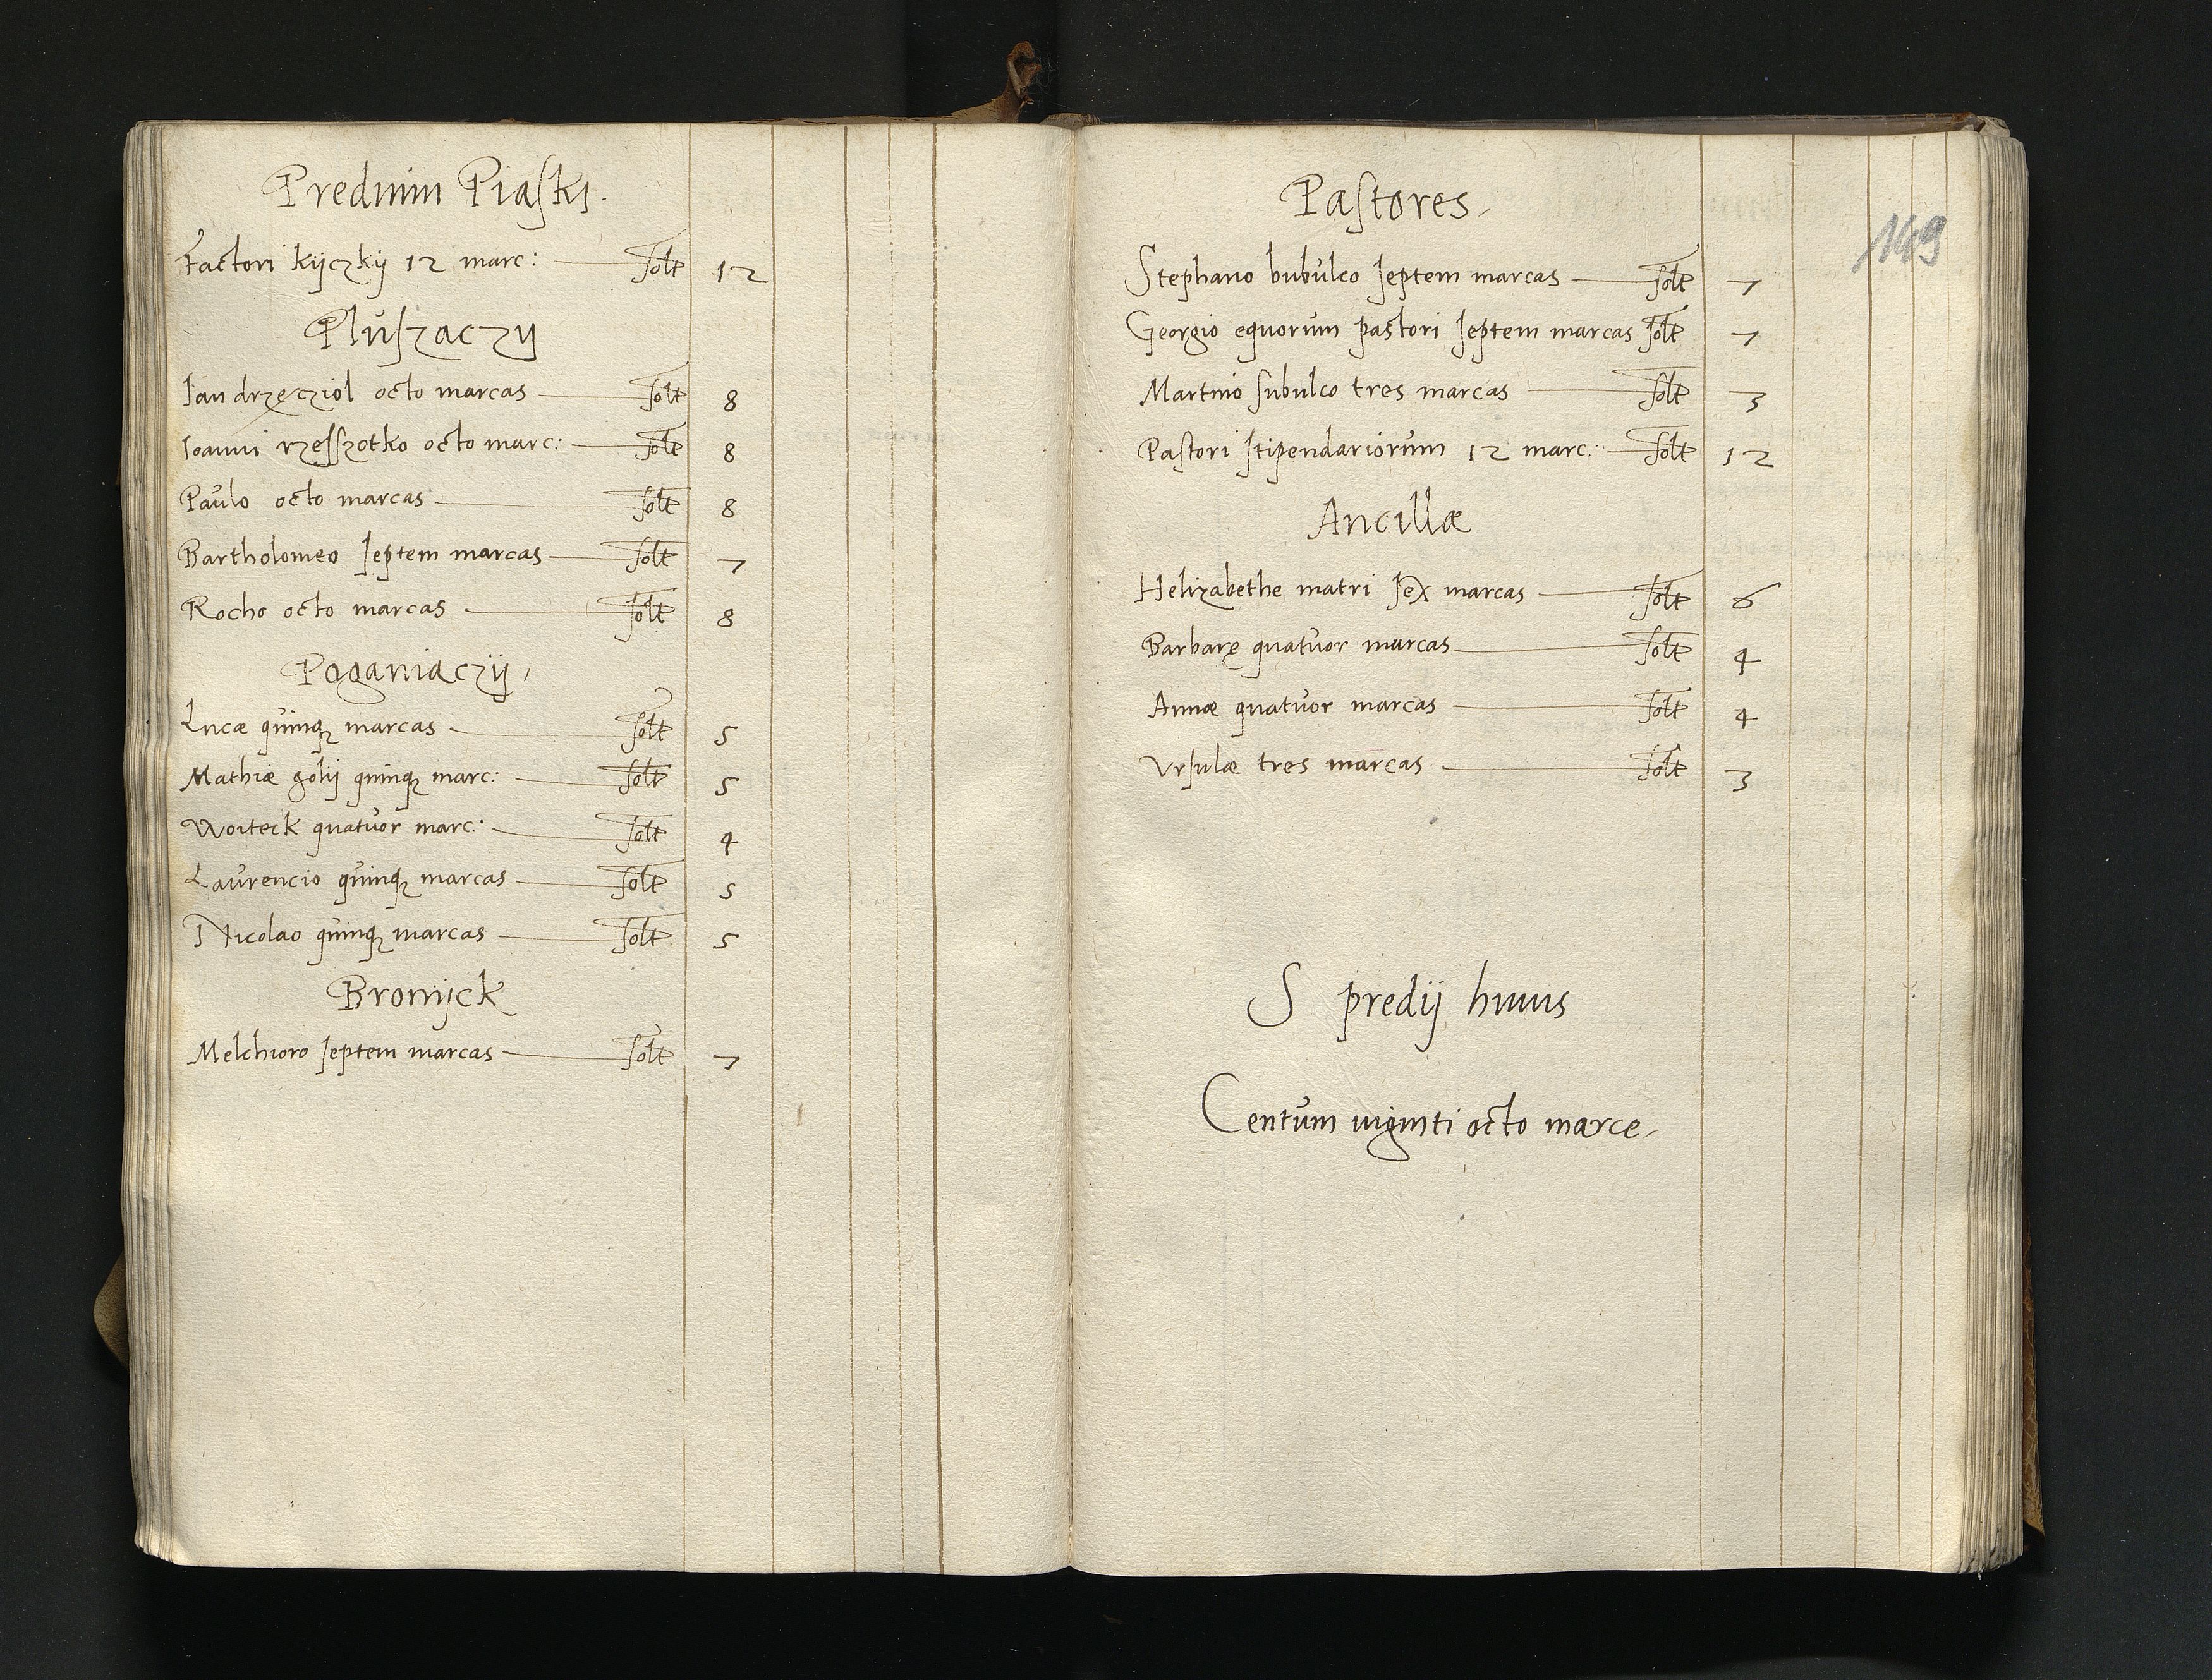 Predium Piaski.
Factori kijczkij 12 marc: solt 12
Pluszaczij
Ian drzęcziol octo marcas solt 8
Ioanni rzesszotko octo marc: solt 8
Paulo octo marcas solt 8
Bartholomeo septem marcas solt 7
Rocho octo marcas solt 8
Poganiaczij,
Lucæ quinq; marcas solt 5
Mathiæ golij quinq; marc: solt 5
Woiteck quatuor marc: solt 4
Laurencio quinq; marcas solt 5
Nicolao quinq; marcas solt 5
Bronijck
Melchioro septem marcas solt 7
149
Pastores,
Stephano bubulco septem marcas solt 7
Georgio equorum pastori septem marcas solt 7
Martino subulco tres marcas solt 3
Pastori stipendariorum 12 marc: solt 12
Ancillæ
Helizabethe matri sex marcas solt 6
Barbarę quatuor marcas solt 4
Annæ quatuor marcas solt 4
Vrsulæ tres marcas solt 3
S predij huius
Centum uiginti octo marce,